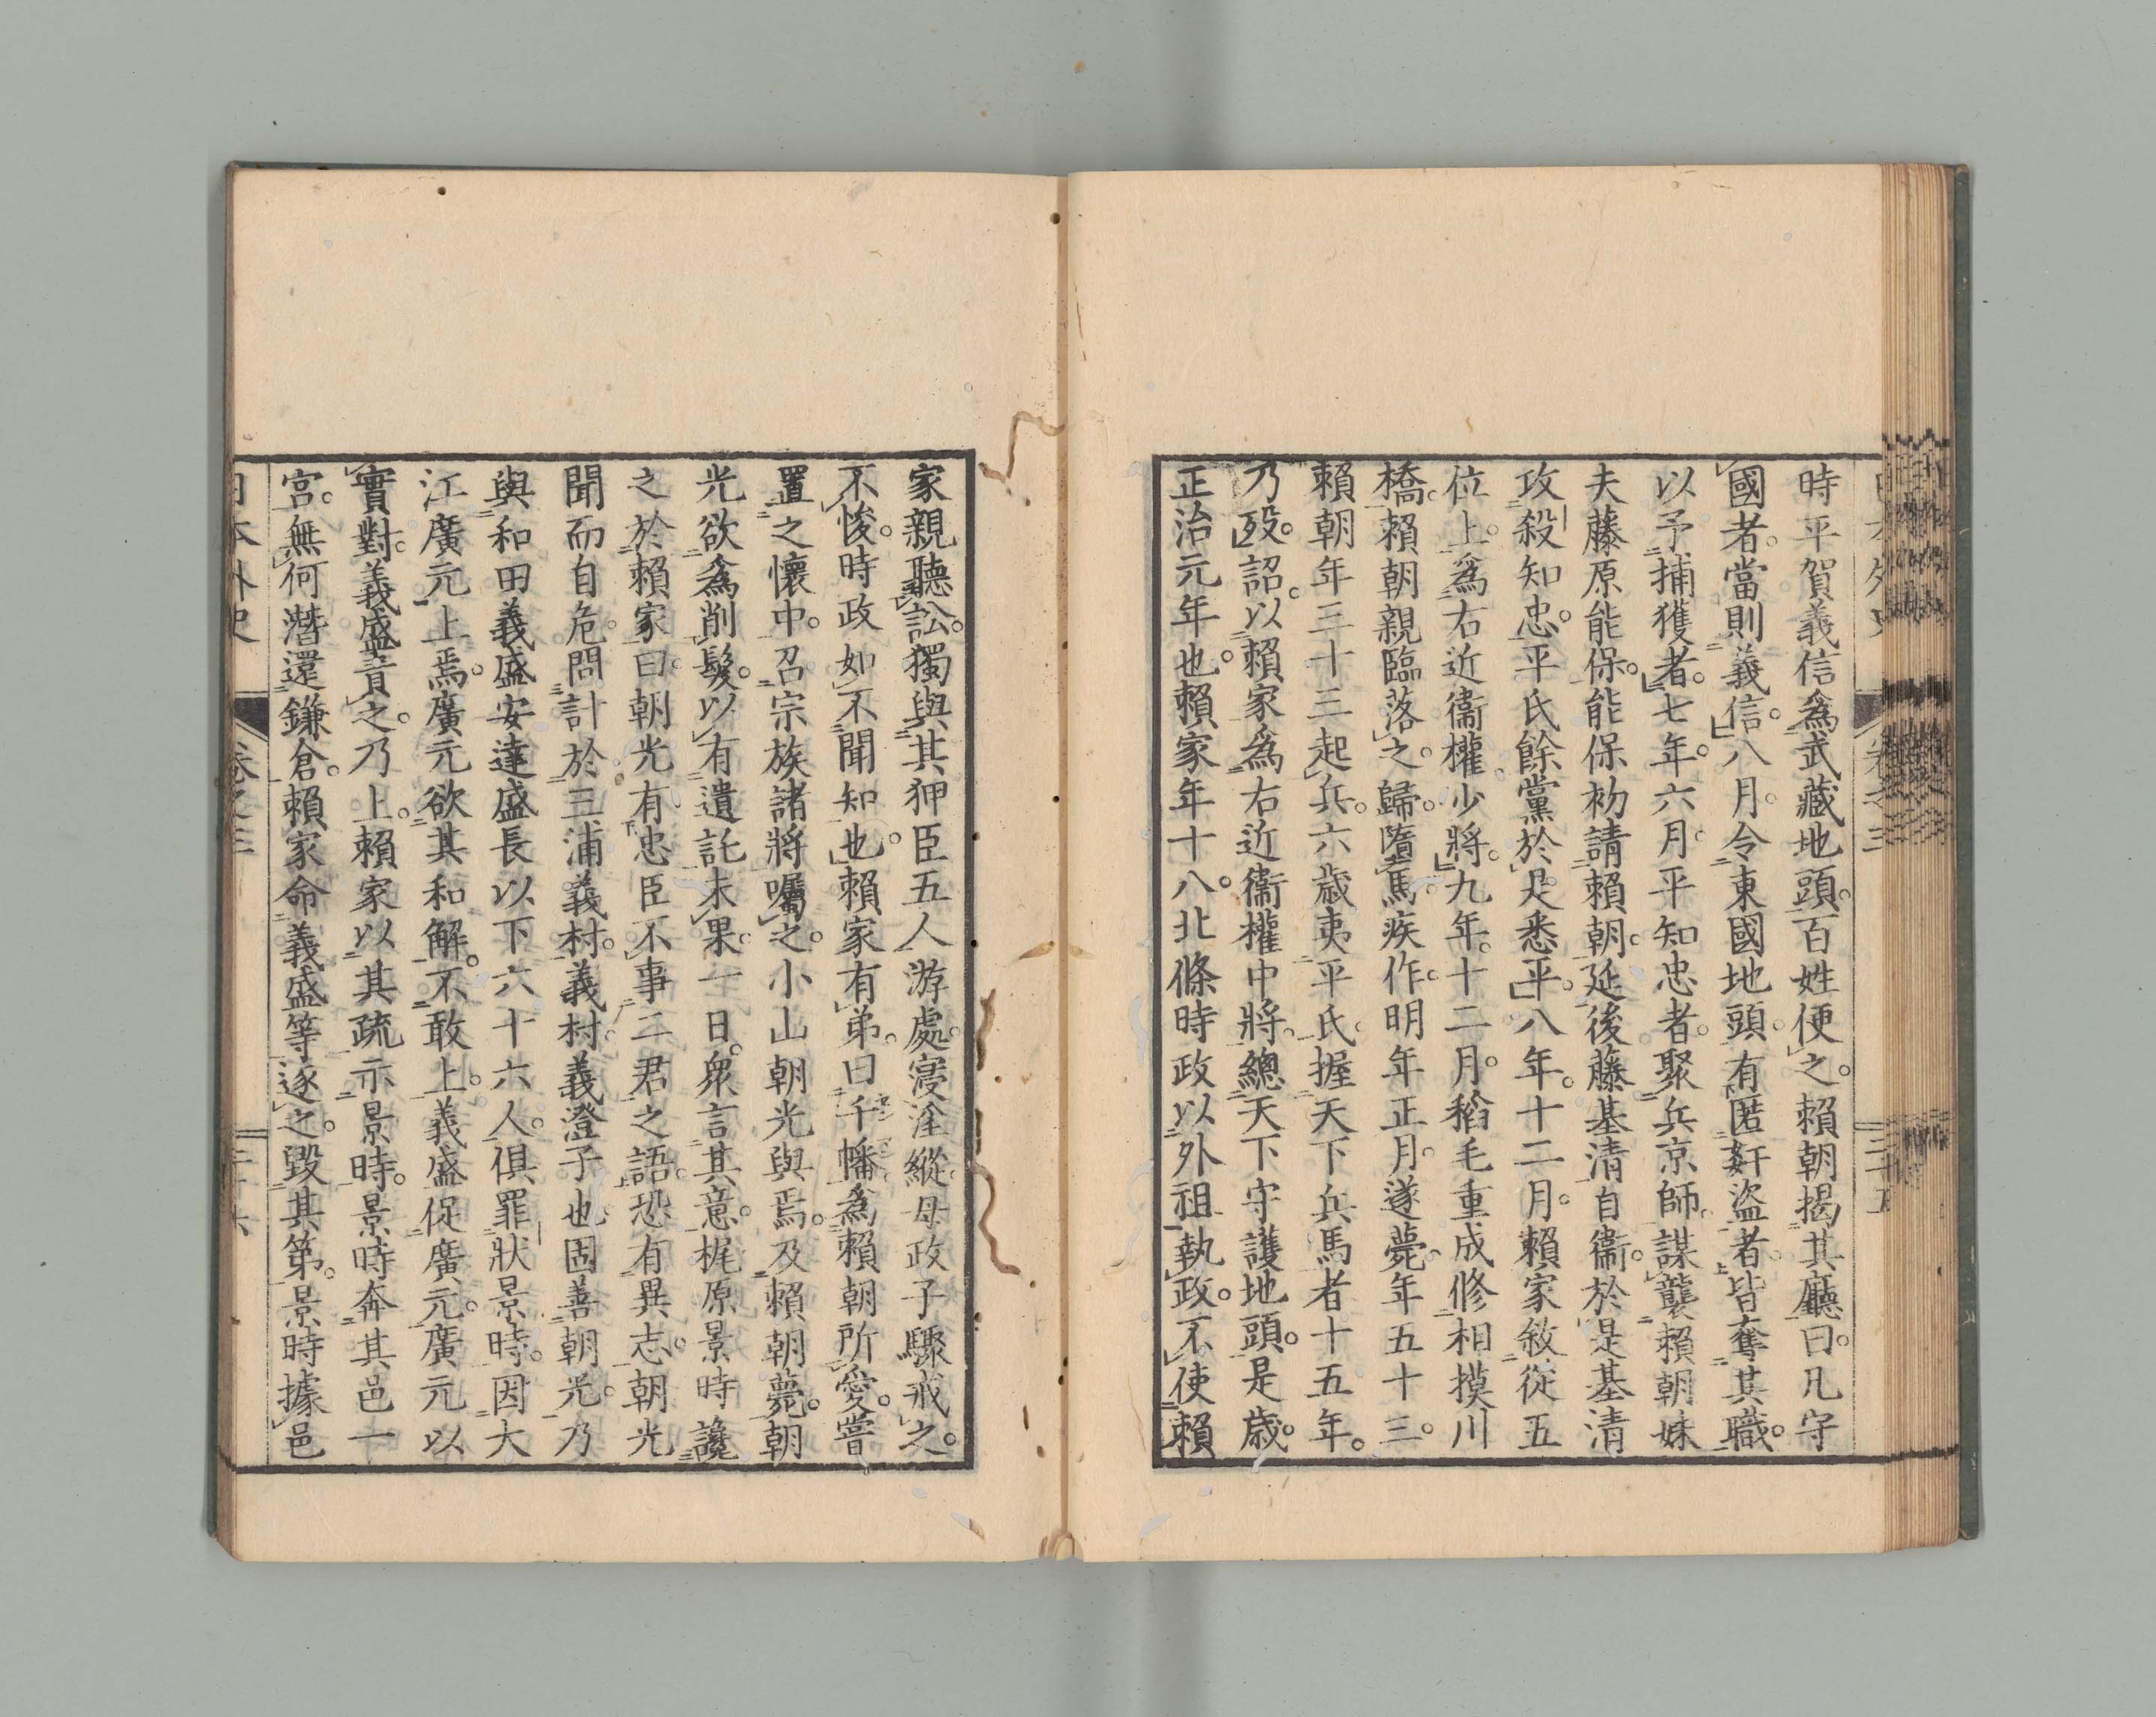 時平賀義信爲武藏地頭。百姓便之。賴朝揭其廳曰。凡守
國者。當則義信。八月。令東國地頭。有匿奸盜者。皆奪其職。
以予捕獲者。七年。六月。平知忠者。聚兵京師。謀襲賴朝妹
夫藤原能保。能保初請賴朝。延後藤基清自衞。於是基清
攻殺知忠。平氏餘黨於是悉平。八年。十二月。賴家敘從五
位上。爲右近衞權少將。九年。十二月。稻毛重成修相摸川
橋。賴朝親臨落之。歸。墮馬疾作。明年正月。遂薨。年五十三。
賴朝年三十三起兵。六歲夷平氏。握天下兵馬者十五年。
乃歿。詔。以賴家爲右近衞權中將。總天下守護地頭。是歲。
正治元年也。賴家年十八。北條時政以外祖執政。不使賴
家親聽訟。獨與其狎臣五人游處。寖淫縱。母政子驟戒之。
不悛。時政如不聞知也。賴家有弟。曰千幡。爲賴朝所愛。嘗
置之懷中。召宗族諸將囑之。小山朝光與焉。及賴朝薨。朝
光欲爲削髮。以有遺託未果。一日。衆言其意。梶原景時讒
之於賴家曰。朝光有忠臣不事二君之語。恐有異志。朝光
聞而自危。問計於三浦義村。義村。義澄子也。固善朝光。乃
與和田義盛安達盛長以下六十六人。俱罪狀景時。因大
江廣元上焉。廣元欲其和解。不敢上。義盛促廣元。廣元以
實對。義盛責之。乃上。賴家以其疏示景時。景時奔其邑一
宮。無何潛還鎌倉。賴家命義盛等逐之。毀其第。景時據邑
日本外史 卷之三